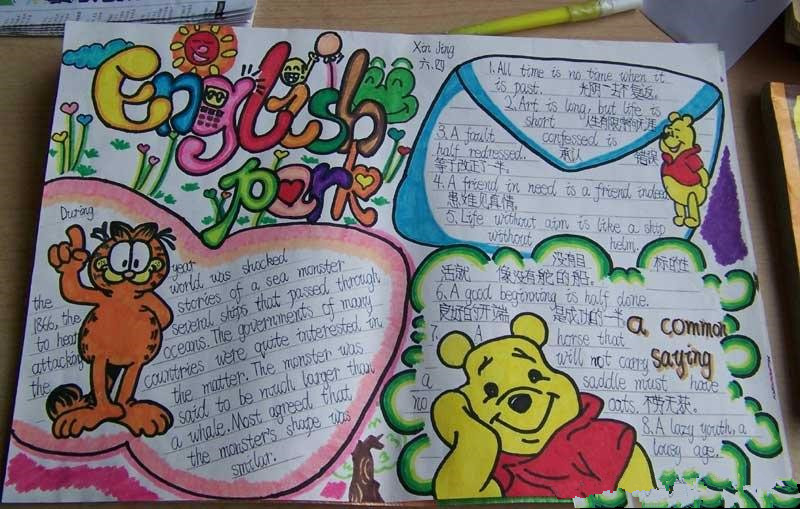 English
park
Xin Jing
六.四
During
the year
1866, the world was shocked
to hear stories of a sea monster
attacking several ships that passed through
the oceans. The governments of many
countries were quite interested in
the matter. The monster was
said to be much larger than
a whale. Most agreed that
the monster's shape was
similar.
1. All time is no time when it
is past. 光阴一去不复返。
2. Art is long, but life is
short 人生有限学问无涯
3. A fault confessed is
half redressed. 承认 错误
等于改正了一半。
4. A friend in need is a friend indeed
患难见真情。
5. Life without aim is like a ship
without helm.
没有目 标的生
活就 像没有舵的船。
6. A good beginning is half done.
良好的开端 是成功的一半
7. A horse that
will not carry
a saddle must have
no oats. 不劳无获。
8. A lazy youth, a
lousy age.
a common
saying